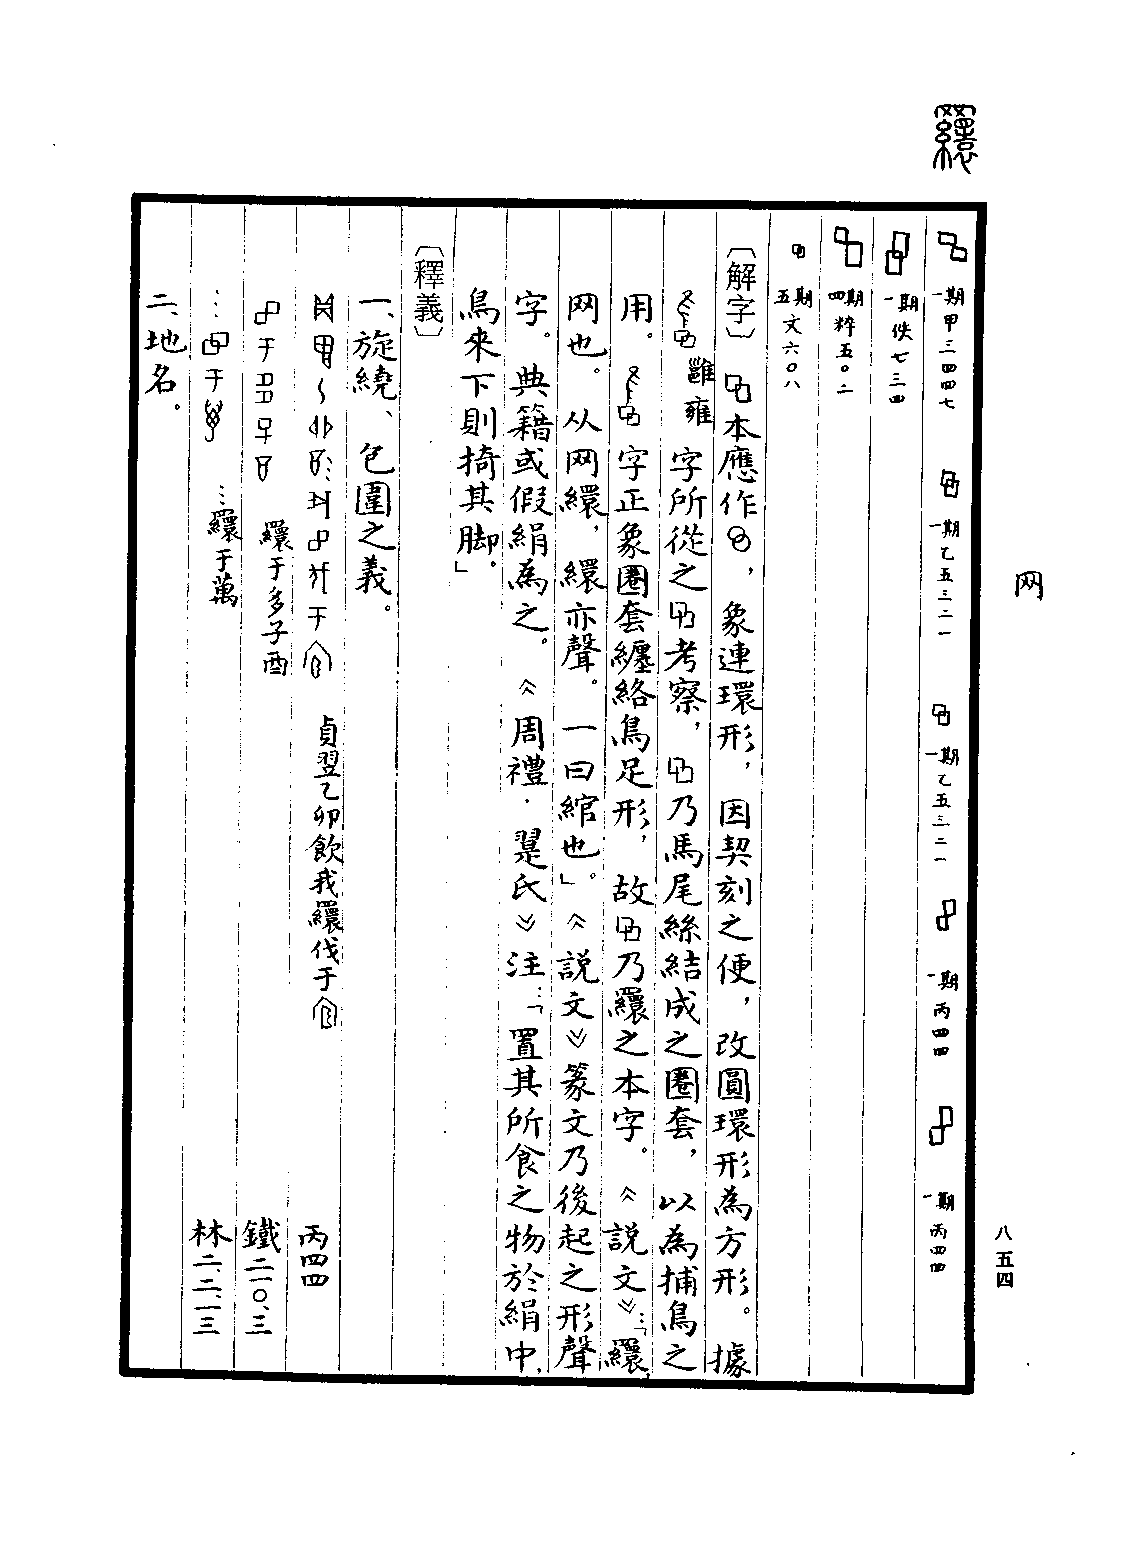 网
八五四
一期甲三四四七
一期乙五三二一
一期乙五三二一
一期丙四四
一期丙四四
一期佚七三四
四期粹五〇二
五期文六〇八
〔解字〕本應作，象連環形，因契刻之便，改圓環形為方形。據
雝雍字所從之考察，乃馬尾絲結成之圈套，以為捕鳥之
用。字正象圈套纏絡鳥足形，故乃繯之本字。《說文》：「繯，
网也。从网繯，繯亦聲。一曰綰也。」《說文》篆文乃後起之形聲
字。典籍或假絹為之。《周禮·翨氏》注：「置其所食之物於絹中，
鳥來下則掎其脚。」
〔釋義〕
一、旋繞、包圍之義。
貞翌乙卯飲我繯伐于 丙四四
繯于多子酉 鐵二一〇、三
…繯于萬 林二、二、一三
二、地名。